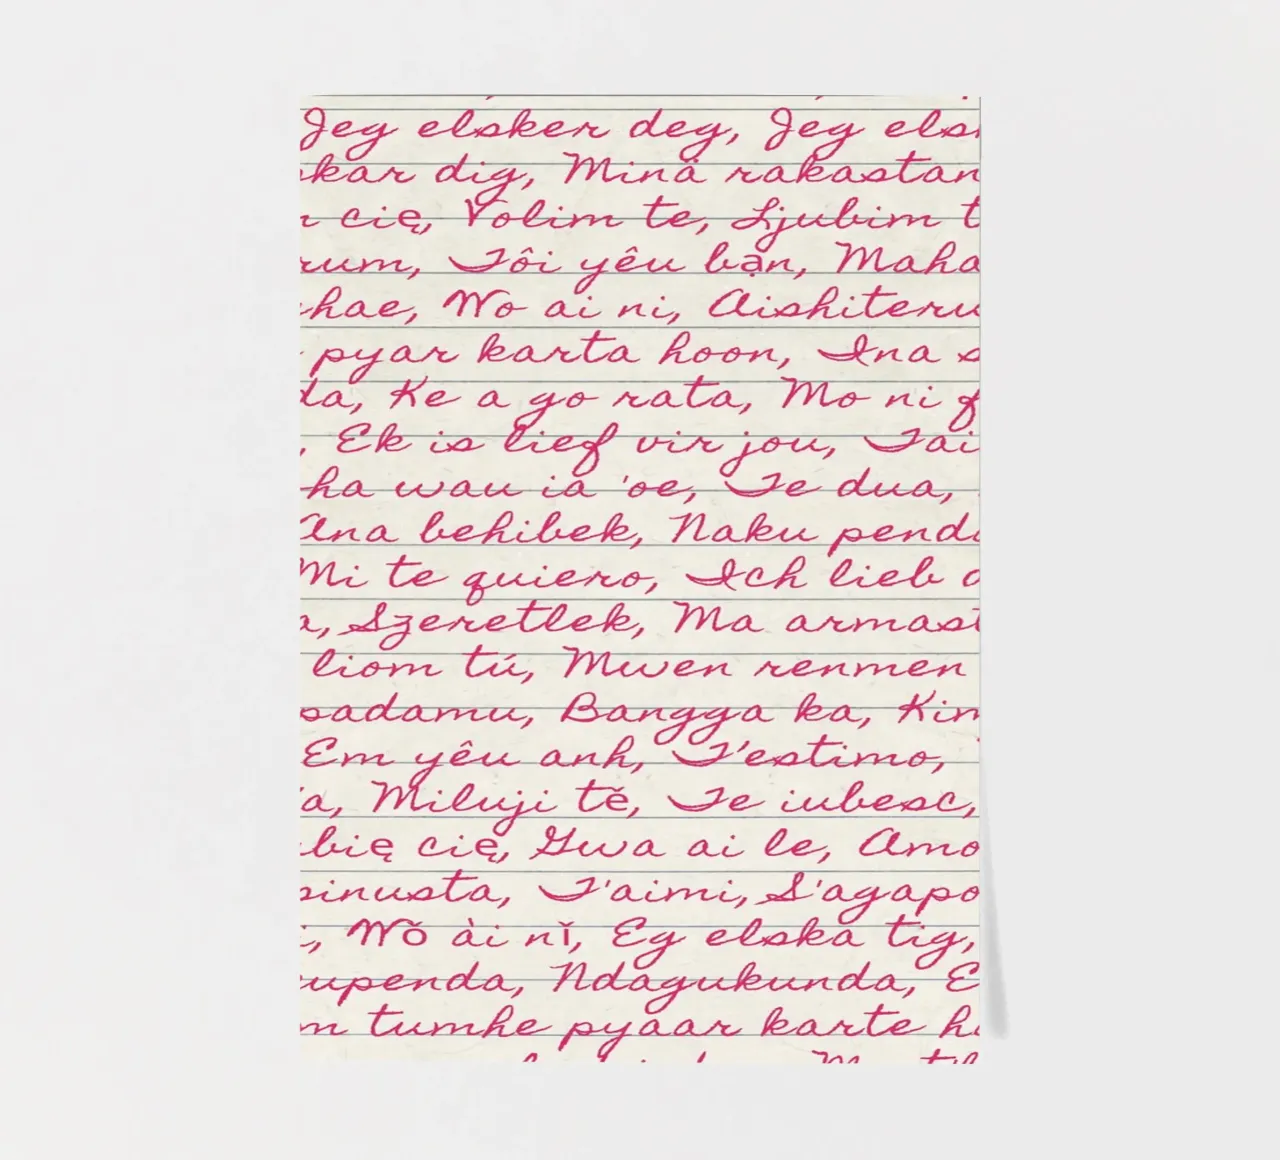 Jeg elsker deg, Jeg els
kar dig, Minä rakastan
cię, Volim te, Ljubim t
rum, Tôi yêu bạn, Maha
hae, Wo ai ni, Aishiteru
pyar karta hoon, Ina s
da, Ke a go rata, Mo ni f
, Ek is lief vir jou, Tai
ha wau ia 'oe, Te dua,
Ana behibek, Naku penda
Mi te quiero, Ich lieb d
a, Szeretlek, Ma armast
liom tú, Mwen renmen
sadamu, Bangga ka, Kim
Em yêu anh, T'estimo,
a, Miluji tě, Te iubesc,
bię cię, Gwa ai le, Amo
sinusta, T'aimi, S'agapo
i, Wǒ ài nǐ, Eg elska tig,
upenda, Ndagukunda, E
m tumhe pyaar karte h